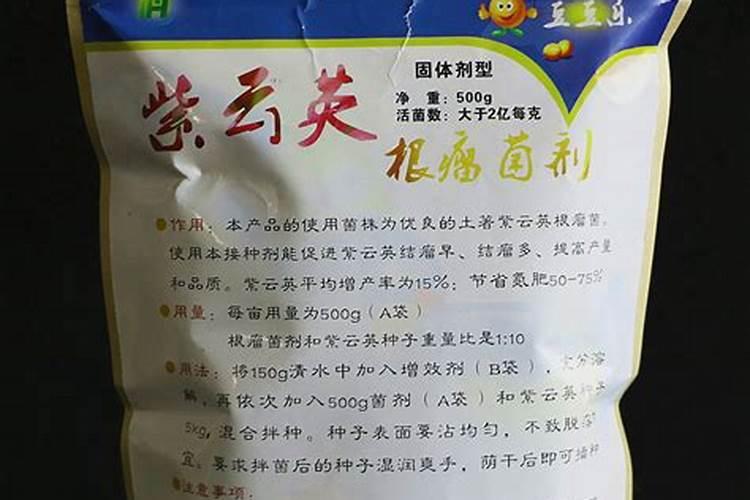 豆豆乐
固体剂型
净 重：500g
活菌数：大于2亿每克
紫云英
根瘤菌剂
作用：本产品的使用菌株为优良的土著紫云英根瘤菌。
使用本接种剂能促进紫云英结瘤早、结瘤多、提高产量
和品质。紫云英平均增产率为15%；节省氮肥50-75%
用量：每亩用量为500g（A袋）
根瘤菌剂和紫云英种子重量比是1:10
用法：将150g清水中加入增效剂（B袋），充分溶
解，再依次加入500g菌剂（A袋）和紫云英种子
5kg，混合拌种。种子表面要沾均匀，不致脱落
宜。要求拌菌后的种子湿润爽手，荫干后即可播种
注意事项：